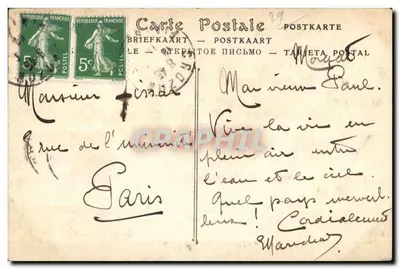 RÉPUBLIQUE FRANÇAISE
RÉPUBLIQUE FRANÇAISE
5c POSTES
5c POSTES
Carte Postale
POSTKARTE
BRIEFKAART — POSTKAART
ОТКРЫТОЕ ПИСЬМО — TARJETA POSTAL
29
Morgat
Monsieur
rue de l'université
Paris
Mon vieux Paul.
Vive la vie en
plein air entre
l'eau et le ciel
Quel pays merveil
leux! Cordialement
CARTHAPHIL